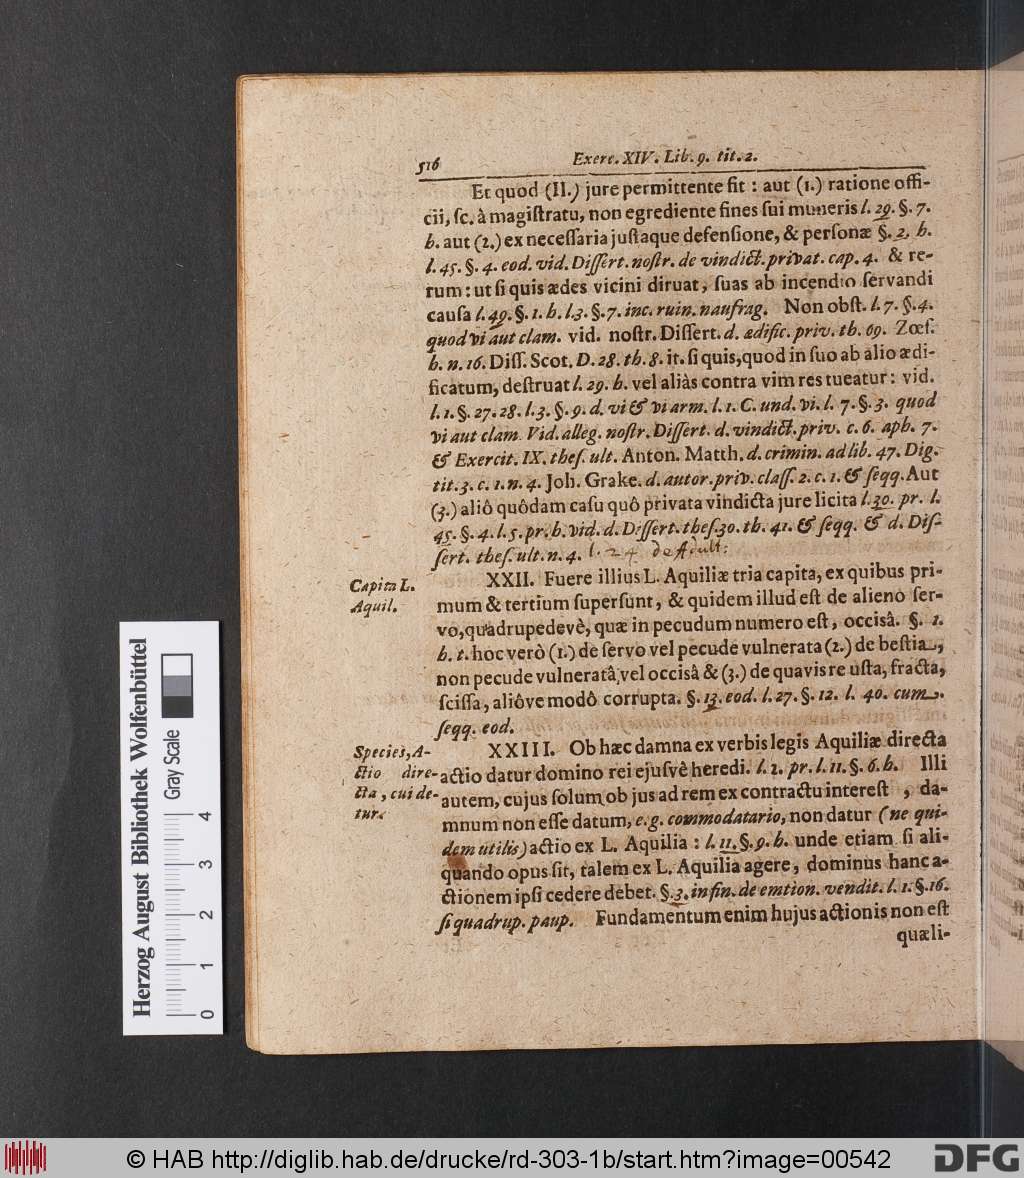 516
Exerc. XIV. Lib. 9. tit. 2.
Et quod (II.) jure permittente fit : aut (1.) ratione offi-
cii, ſc. à magiſtratu, non egrediente fines ſui muneris l. 29. §. 7.
h. aut (2.) ex neceſſaria juſtaque defenſione, & perſonæ §. 2. h.
l. 45. §. 4. eod. vid. Diſſert. noſtr. de vindict. privat. cap. 4. & re-
rum: ut ſi quis ædes vicini diruat, ſuas ab incendio ſervandi
cauſa l. 49. §. 1. h. l. 3. §. 7. inc. ruin. naufrag. Non obſt. l. 7. §. 4.
quod vi aut clam. vid. noſtr. Diſſert. d. ædific. priv. th. 69. Zœſ.
h. n. 16. Diſſ. Scot. D. 28. th. 8. it. ſi quis, quod in ſuo ab alio ædi-
ficatum, deſtruat l. 29. h. vel aliàs contra vim res tueatur: vid.
l. 1. §. 27. 28. l. 3. §. 9. d. vi & vi arm. l. 1. C. und. vi. l. 7. §. 3. quod
vi aut clam. Vid. alleg. noſtr. Diſſert. d. vindict. priv. c. 6. aph. 7.
& Exercit. IX. theſ. ult. Anton. Matth. d. crimin. ad lib. 47. Dig.
tit. 3. c. 1. n. 4. Joh. Grake. d. autor. priv. claſſ. 2. c. 1. & ſeqq. Aut
(3.) aliô quôdam caſu quô privata vindicta jure licita l. 30. pr. l.
45. §. 4. l. 5. pr. h. vid. d. Diſſert. theſ. 30. th. 41. & ſeqq. & d. Diſ-
ſert. theſ. ult. n. 4. l. 24 de Adult:
Capita L.
Aquil.
XXII. Fuere illius L. Aquiliæ tria capita, ex quibus pri-
mum & tertium ſuperſunt, & quidem illud eſt de alieno ſer-
vo, quadrupedevè, quæ in pecudum numero eſt, occisâ. §. 1.
h. t. hoc verò (1.) de ſervo vel pecude vulnerata (2.) de beſtia,
non pecude vulneratâ, vel occisâ & (3.) de quavis re uſta, fracta,
ſciſſa, aliôve modô corrupta. §. 13. eod. l. 27. §. 12. l. 40. cum.
ſeqq. eod.
Species, A-
ctio dire-
cta, cui de-
tur.
XXIII. Ob hæc damna ex verbis legis Aquiliæ directa
actio datur domino rei ejuſvè heredi. l. 2. pr. l. 11. §. 6. h. Illi
autem, cujus ſolum ob jus ad rem ex contractu intereſt, da-
mnum non eſſe datum, e. g. commodatario, non datur (ne qui-
dem utilis) actio ex L. Aquilia : l. 11. §. 9. h. unde etiam ſi ali-
quando opus ſit, talem ex L. Aquilia agere, dominus hanc a-
ctionem ipſi cedere debet. §. 3. in fin. de emtion. vendit. l. 1. §. 16.
ſi quadrup. paup. Fundamentum enim hujus actionis non eſt
quæli-
Herzog August Bibliothek Wolfenbüttel
Gray Scale
0 1 2 3 4
© HAB http://diglib.hab.de/drucke/rd-303-1b/start.htm?image=00542
DFG